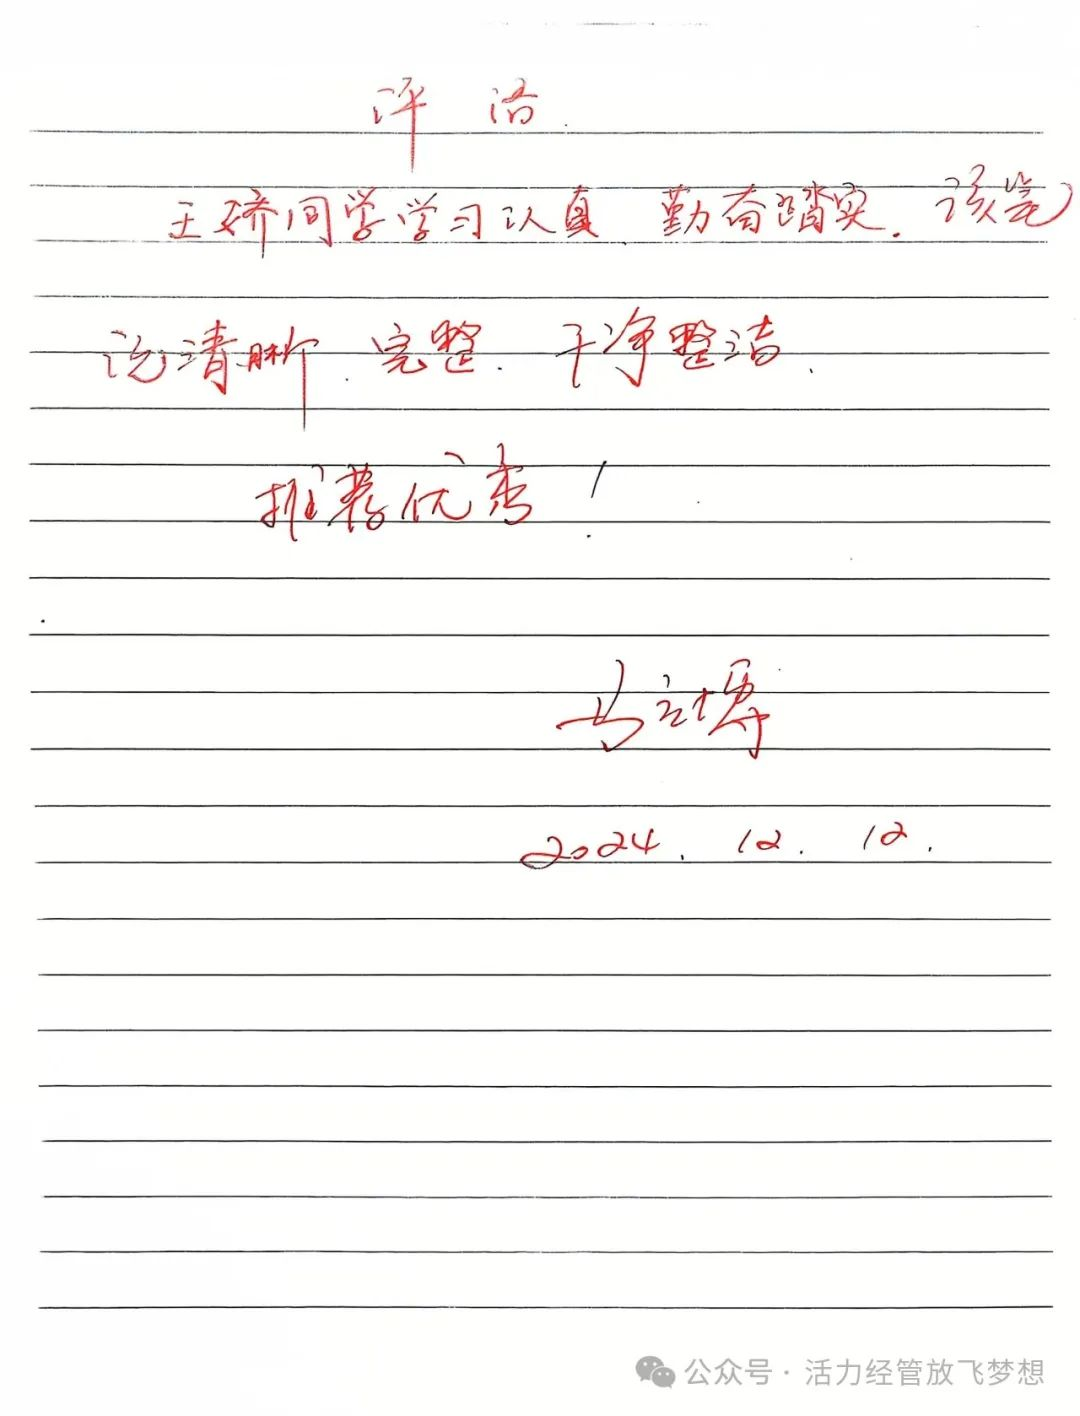 评语
王娇同学学习认真 勤奋踏实. 该笔
记清晰. 完整. 干净整洁.
推荐优秀!
马立博
2024. 12. 12.
公众号·活力经管放飞梦想